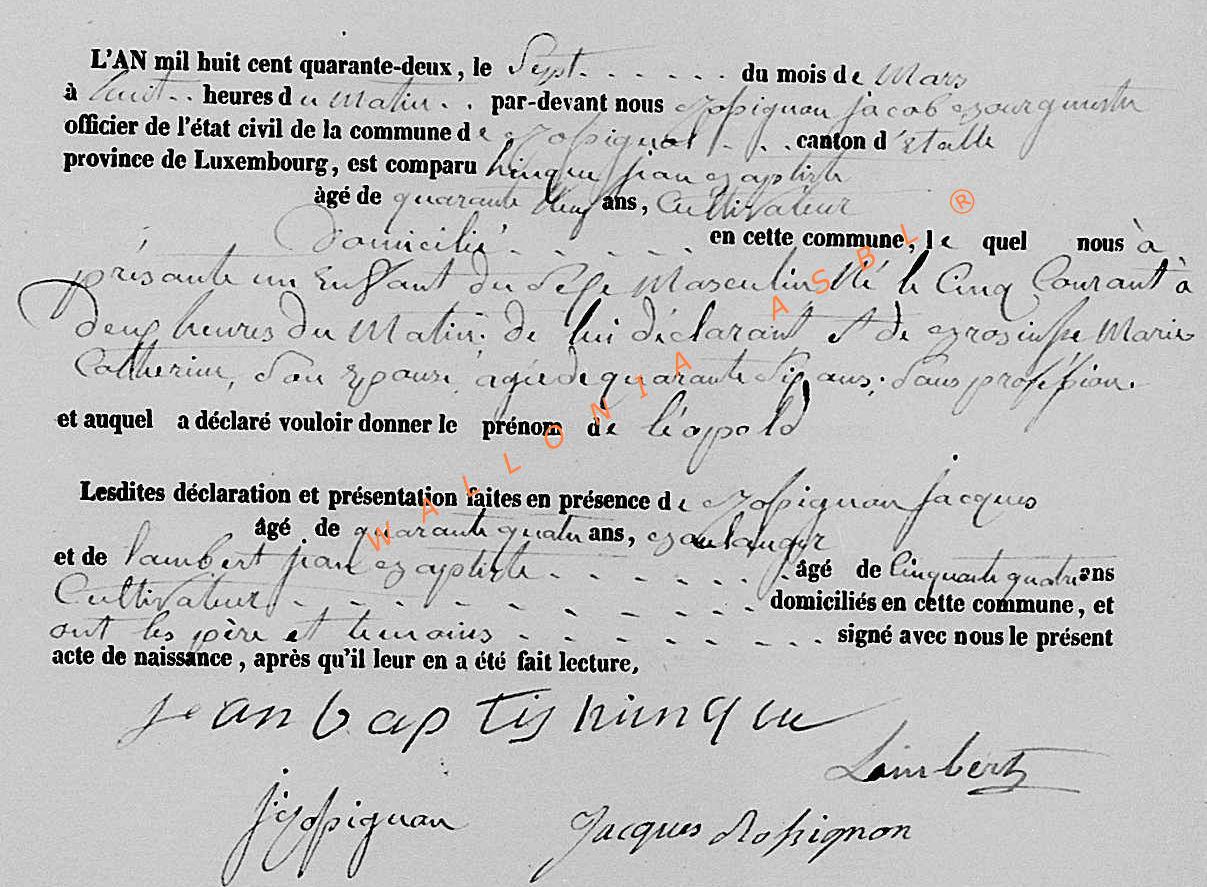 L'AN mil huit cent quarante-deux, le Sept . . . . . . du mois de Mars
à huit . . heures du Matin . . par-devant nous Rossignon jacob Bourgmestre
officier de l'état civil de la commune de Rossignol . . . canton d'Etalle
province de Luxembourg, est comparu hinque jean Baptiste
àgé de quarante deux ans, Cultivateur
Domicilié . . . . . en cette commune, le quel nous à
présanté un Enffant du Sexe Masculin Né le Cinq Courant à
deux heures du Matin; de lui déclarant et de Marie
Catherine, Son Epouse, agée de quarante Six ans; Sans profession.
et auquel a déclaré vouloir donner le prénom de léopold
Lesdites déclaration et présentation faites en présence de Rossignon jacques
âgé de quarante quatre ans, Boulanger
et de lambert jean Baptiste . . . . . . . âgé de Cinquante quatre ans
Cultivateur . . . . . . . . . . . domiciliés en cette commune, et
ont les père et temoins . . . . . . . signé avec nous le présent
acte de naissance, après qu'il leur en a été fait lecture,
jean baptis hinque
Lambert
j Rossignon
Jacques Rossignon
WALLONIA ASBL ®